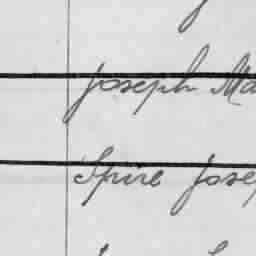 Joseph Ma
Spire Jose